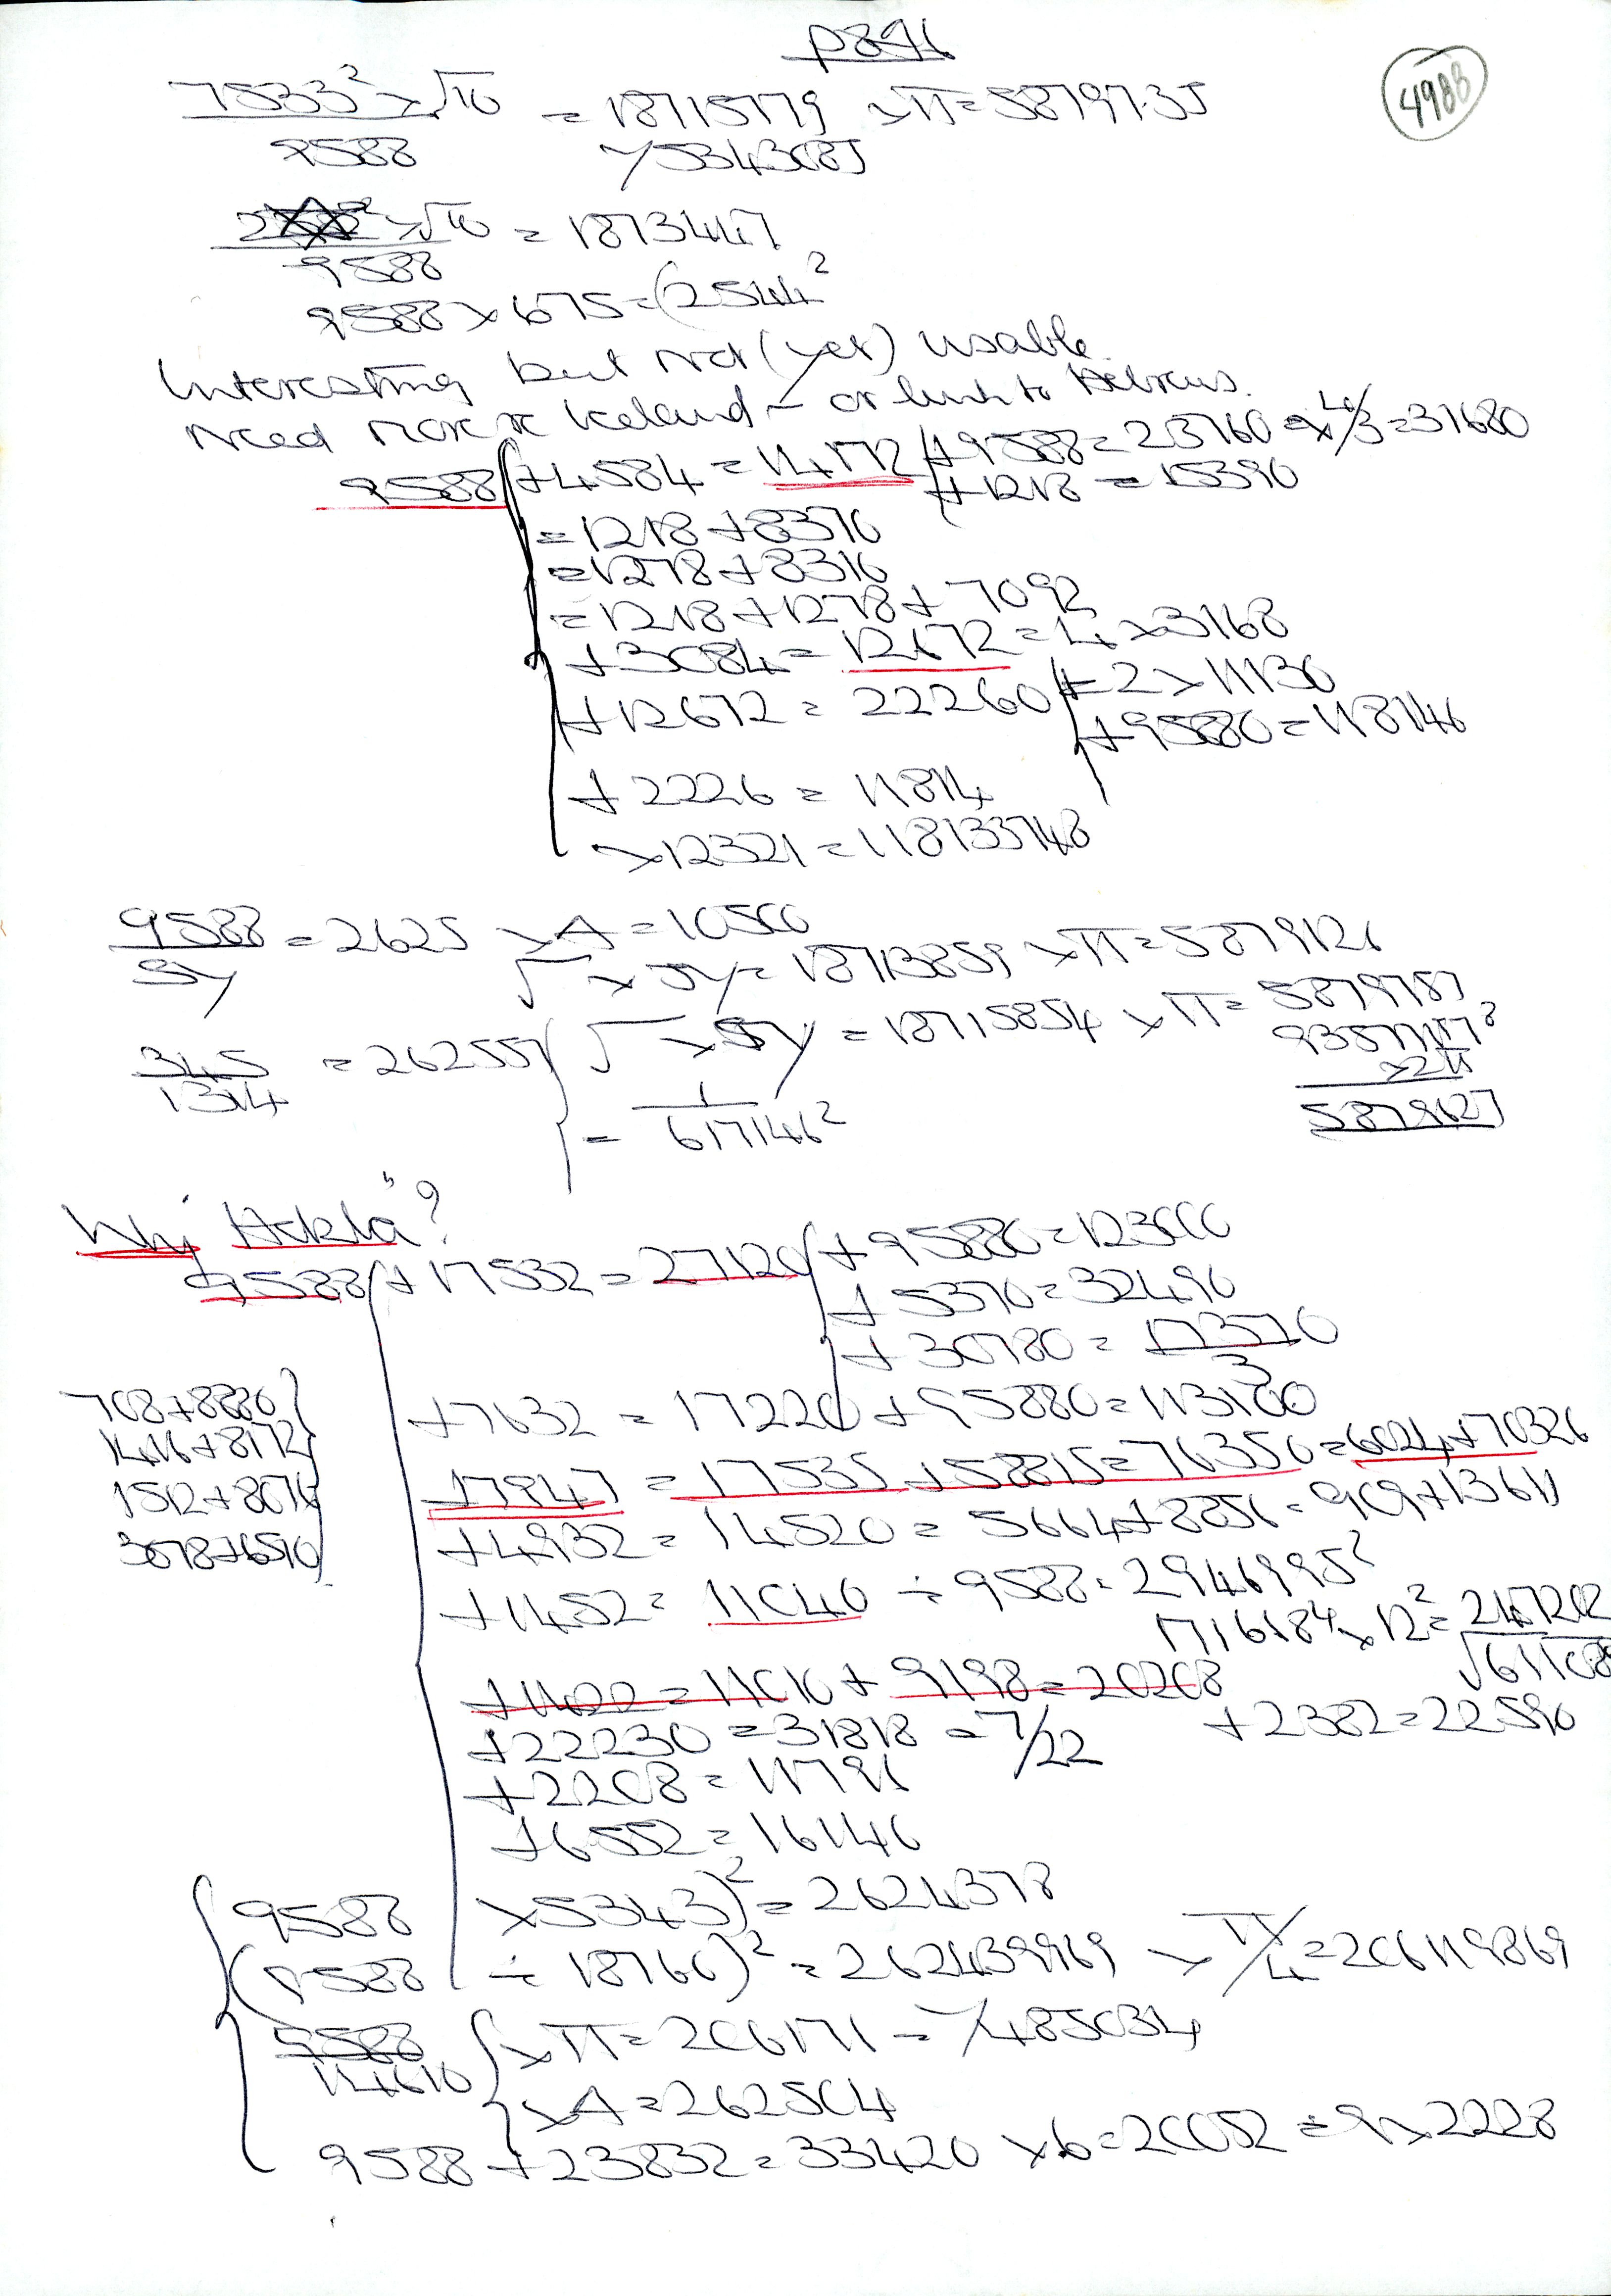 p896
4988
7533² × √10 / 9588 = 18715779 × π = 58797.35
/ 5343085
² × √10 / 9588 = 1873447
9588 × 675 = (2544²
Interesting but not (yet) usable.
Need more re Iceland – or link to Hebrews.
9588 + 4584 = 14172 + 9588 = 23760 × 4/3 = 31680
+ 1218 = 15390
= 1218 + 8370
= 1278 + 8310
= 1218 + 1278 + 7092
+ 3084 = 12672 = 4 × 3168
+ 12672 = 22260 = 2 × 11130
+ 95880 = 118146
+ 2226 = 11814
× 12321 = 118133748
9588 / 5y = 2625 × 4 = 10500
√ × 5y = 18713859 × π = 5879126
345 / 1314 = 262557 √ × 5y = 18715854 × π = 5879787
= 1 / 617146²
93571117⁸
× 2π
5879627
Why "Hekla"?
9588 + 17532 = 27120 + 95880 = 123000
+ 5370 = 32490
+ 30780 = 173710 / 3
708 + 8880
1416 + 8172
1512 + 8076
3078 + 6510
+ 7632 = 17220 + 95880 = 113100
+ 7947 = 17535 + 58815 = 76350 = 6024 + 70326
+ 4932 = 14520 = 5664 + 8856 = 909 + 13611
+ 1452 = 11040 ÷ 9588 = 29469952
1716184 × 12² = 2471202
√61108
+ 1422 = 11010 + 9198 = 20208
+ 2382 = 22590
+ 22230 = 31818 = 7/22
+ 2208 = 11796
+ 6552 = 16140
9588 × 5343)² = 2624378
(9588 ÷ 18760)² = 262439969 × π/4 = 206119869
9588 / 114610 × π = 206171 = /485034
× 4 = 262504
9588 + 23832 = 33420 × 6 = 20052 = 9 × 2228